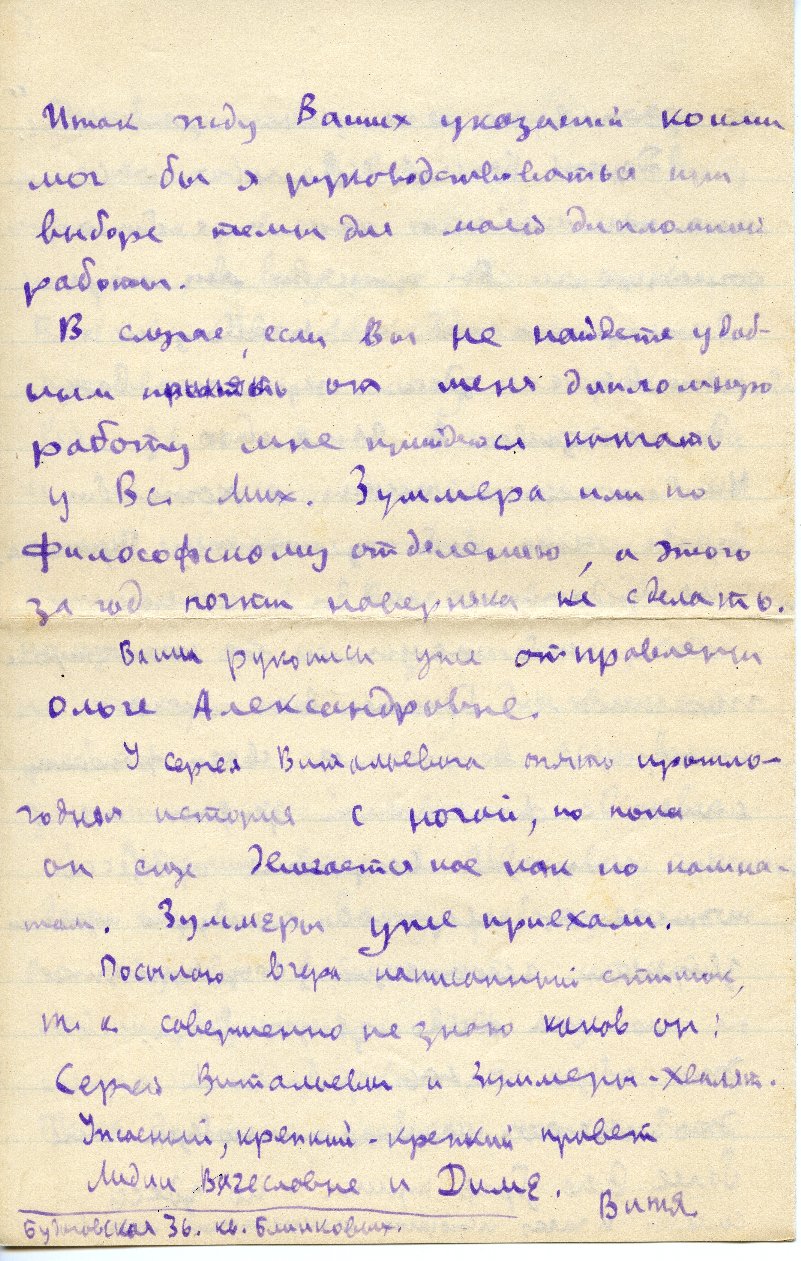 Итак жду Ваших указаний коими
мог бы я руководствоваться при
выборе темы для моей дипломной
работы.
В случае, если Вы не найдете удоб-
ным принять от меня дипломную
работу мне придется кончать
у Вс. Мих. Зуммера или по
философскому отделению, а этого
за год почти наверняка не сделать.
Ваши рукописи уже отправлены
Ольге Александровне.
У Сергея Витальевича опять прошло-
годняя история с ногой, но пока
он еще двигается кое как по комна-
там. Зуммеры уже приехали.
Посылаю вчера написанный стишок,
т. к. совершенно не знаю каков он:
Сергей Витальевич и Зуммеры - хвалят.
Ужасный, крепкий-крепкий привет
Лидии Вячеславне и Диме.
Витя
36. кв. Блинковых.